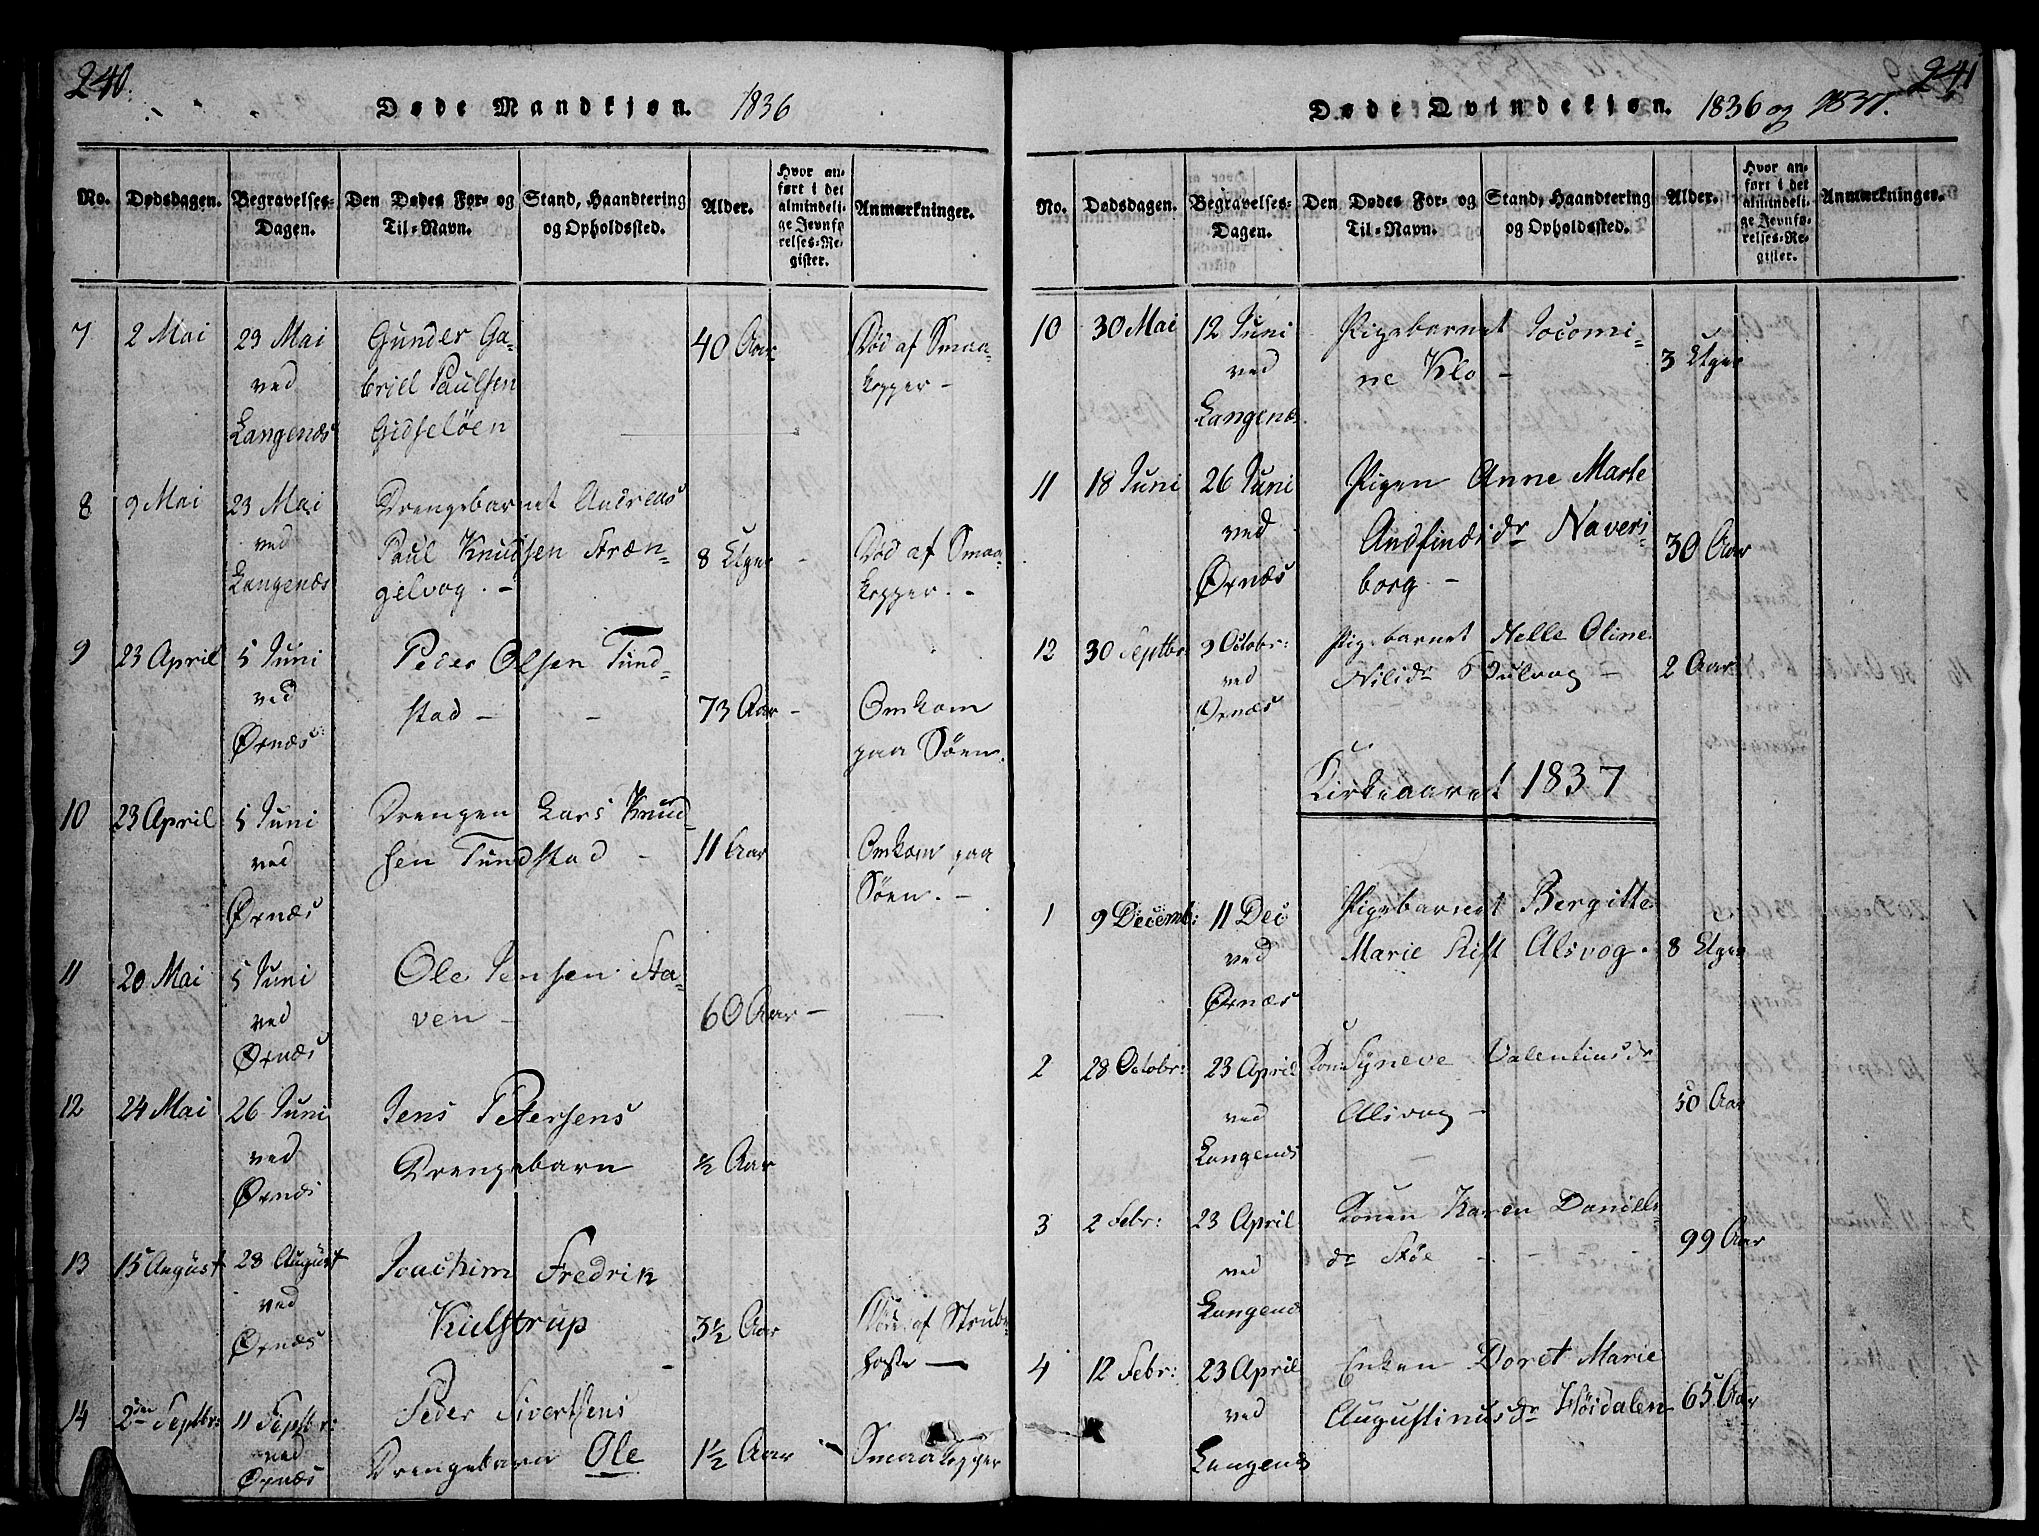 240.
Døde Mandkjøn. 1836
No. Dødsdagen. Begravelses-Dagen. Den Dødes For- og Til-Navn. Stand, Haandtering og Opholdssted. Alder. Hvor anført i det almindelige Jevnførelses-Register. Anmærkninger.
7 2 Mai 23 Mai Gunder Ga- 40 Aar Død af Smaa-
ved briel Paulsen kopper -
Langenæs Gidseløen
8 9 Mai 23 Mai Drengebarnet Andreas
ved Paul Knudsen Stræn- 8 Uger - Død af Smaa-
Langenæs gelvog. - kopper. -
9 23 April 5 Juni Peder Olsen Tund-
ved stad - - 73 Aar - Omkom
Ørnæs paa Søen.
10 23 April 5 Juni Drengen Lars Knud-
ved sen Tundstad - 11 Aar Omkom paa
Ørnæs Søen. -
11 20 Mai 5 Juni Ole Jensen Sta-
ved ven - 60 Aar -
Ørnæs
12 24 Mai 26 Juni Jens Petersens
ved Drengebarn ½ Aar
Ørnæs
13 15 August 28 August Joachim Fredrik
ved Kulstrup 3½ Aar af Strube-
Ørnæs hoste -
14 2den Septbr: 11 Septbr: Peder Sivertsens
ved Drengebarn Ole 1½ Aar Smaakopper
Ørnæs
241
Døde Qvindekjøn. 1836 og 1837.
No. Dødsdagen. Begravelses-Dagen. Den Dødes For- og Til-Navn. Stand, Haandtering og Opholdssted. Alder. Hvor anført i det almindelige Jevnførelses-Register. Anmærkninger.
10 30 Mai 12 Juni Pigebarnet Jocomi-
ved ne Klo - 3 Uger
Langenæs.
11 18 Juni 26 Juni Pigen Anne Marte
ved Andfindsdr Navers- 30 Aar
Ørnæs borg. -
12 30 Septbr: 9 Octobr: Pigebarnet Nelle Oline
ved Nilsdr - 2 Aar
Ørnæs
Kirkeaaret 1837
1 9 Decemb: 11 Dec Pigebarnet Bergitte
ved Marie Rist Alsvog. 8 Uger
Ørnæs
2 28 Octobr: 23 April Kon: Syneve Valentinsdr
ved Alsvog - 50 Aar
Langenæs
3 2 Febr: 23 April Konen Karen Daniels-
ved dr Støe - - 99 Aar
Langenæs
4 12 Febr: 23 April Enken Doret Marie
ved Augustinusdr Høidalen 65 Aar
Langenæs